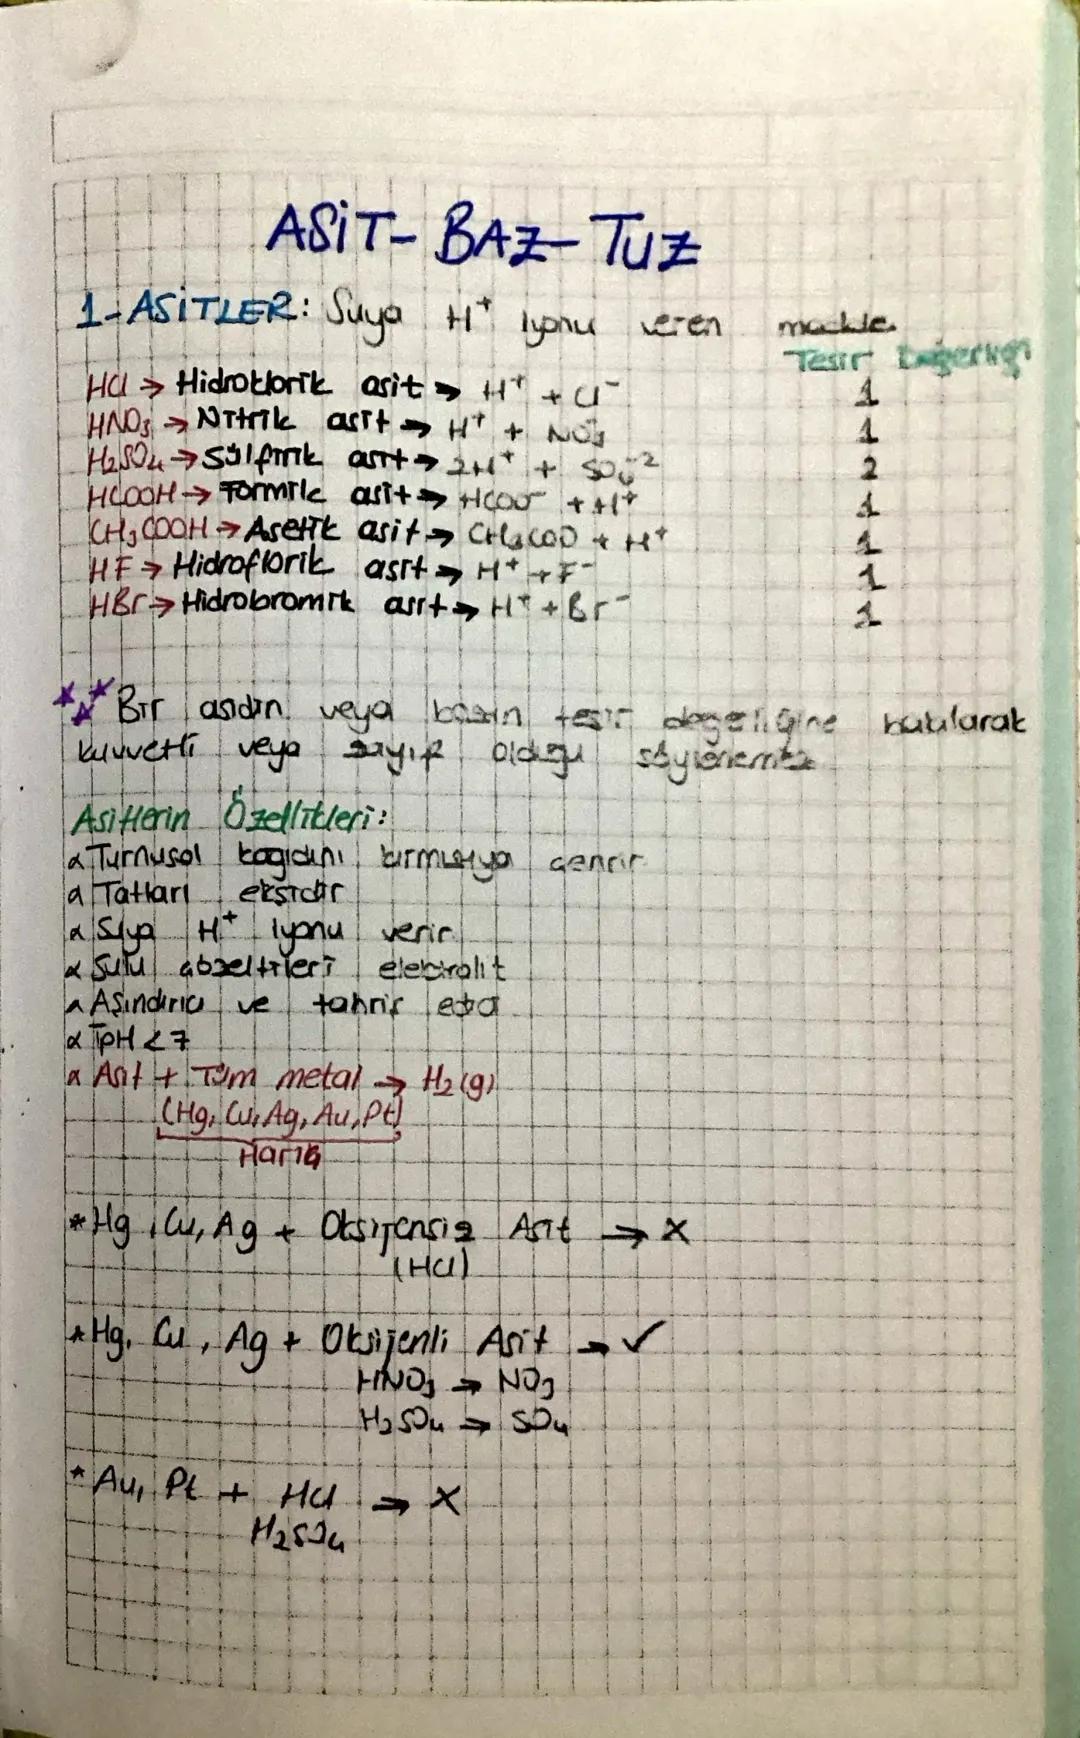 ASİT-BAZ-TUZ
1-ASİTLER: Suya H⁺ iyonu veren madde.
Tesir Değerliği
HCl → Hidroklorik asit → H⁺ + Cl⁻ 1
HNO₃ → Nitrik asit → H⁺ + NO₃⁻ 1
H₂SO₄ → Sülfirik asit → 2H⁺ + SO₄⁻² 2
HCOOH → Formik asit → HCOO⁻ + H⁺ 1
CH₃COOH → Asetik asit → CH₃COO + H⁺ 1
HF → Hidroflorik asit → H⁺ + F⁻ 1
HBr → Hidrobromik asit → H⁺ + Br⁻ 1
Bir asidin veya bazın tesir değerliğine bakılarak
kuvvetli veya zayıf olduğu söylenemez
Asitlerin Özellikleri:
Turnusol kağıdını kırmızıya çevirir
Tatları ekşidir
Suya H⁺ iyonu verir
Sulu çözeltileri elektrolit
Aşındırıcı ve tahriş edici
pH < 7
Asit + Tüm metal → H₂(g)
(Hg, Cu, Ag, Au, Pt)
Hariç
* Hg, Cu, Ag + Oksijensiz Asit → X
(HCl)
* Hg, Cu, Ag + Oksijenli Asit → ✓
HNO₃ → NO₃
H₂SO₄ → SO₄
* Au, Pt + HCl → X
H₂SO₄